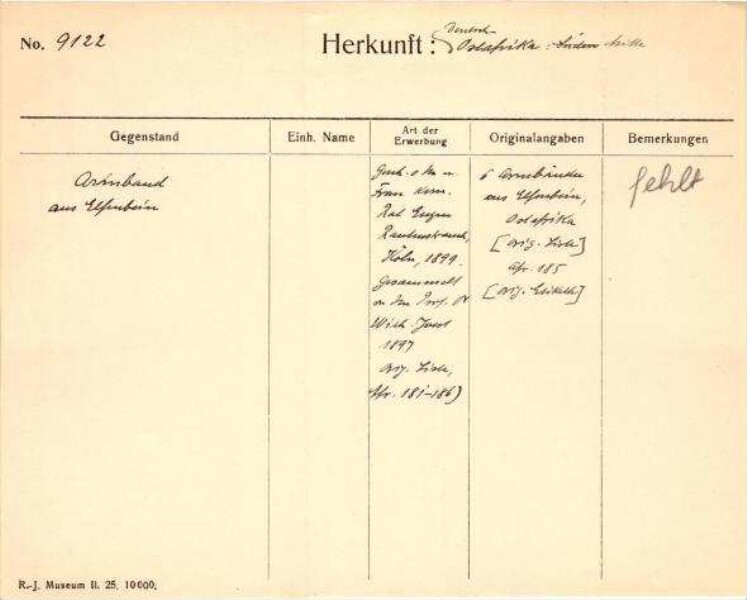 No. 9122
Herkunft: Deutsch-
Ostafrika:
Gegenstand
Einh. Name
Art der
Erwerbung
Originalangaben
Bemerkungen
Armband
aus Elfenbein
Frau
Rat Eugen
Rautenstrauch,
Köln, 1899.
Gesammelt
Prof. Dr
Wilh. Joest
1897
Orig. Liste,
Afr. 181-186)
6 Armbänder
aus Elfenbein,
Ostafrika
[Orig. Liste]
Afr. 185
[Orig. Etikett]
fehlt
R.-J. Museum II. 25. 10000.